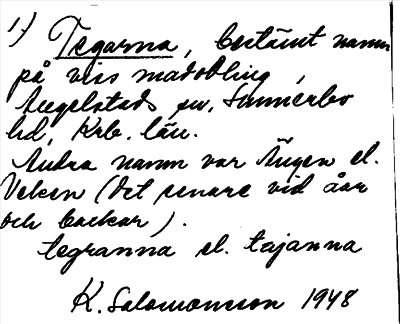 1) Tegarna, bestämt namn
på viss madobling,
Angelstads sn, Sunnerbo
hd, Krb. län.
Andra namn var Ängen el.
Veken (det senare vid åar
och backar).
tegranna el. tajanna
K. Salomonsson 1948